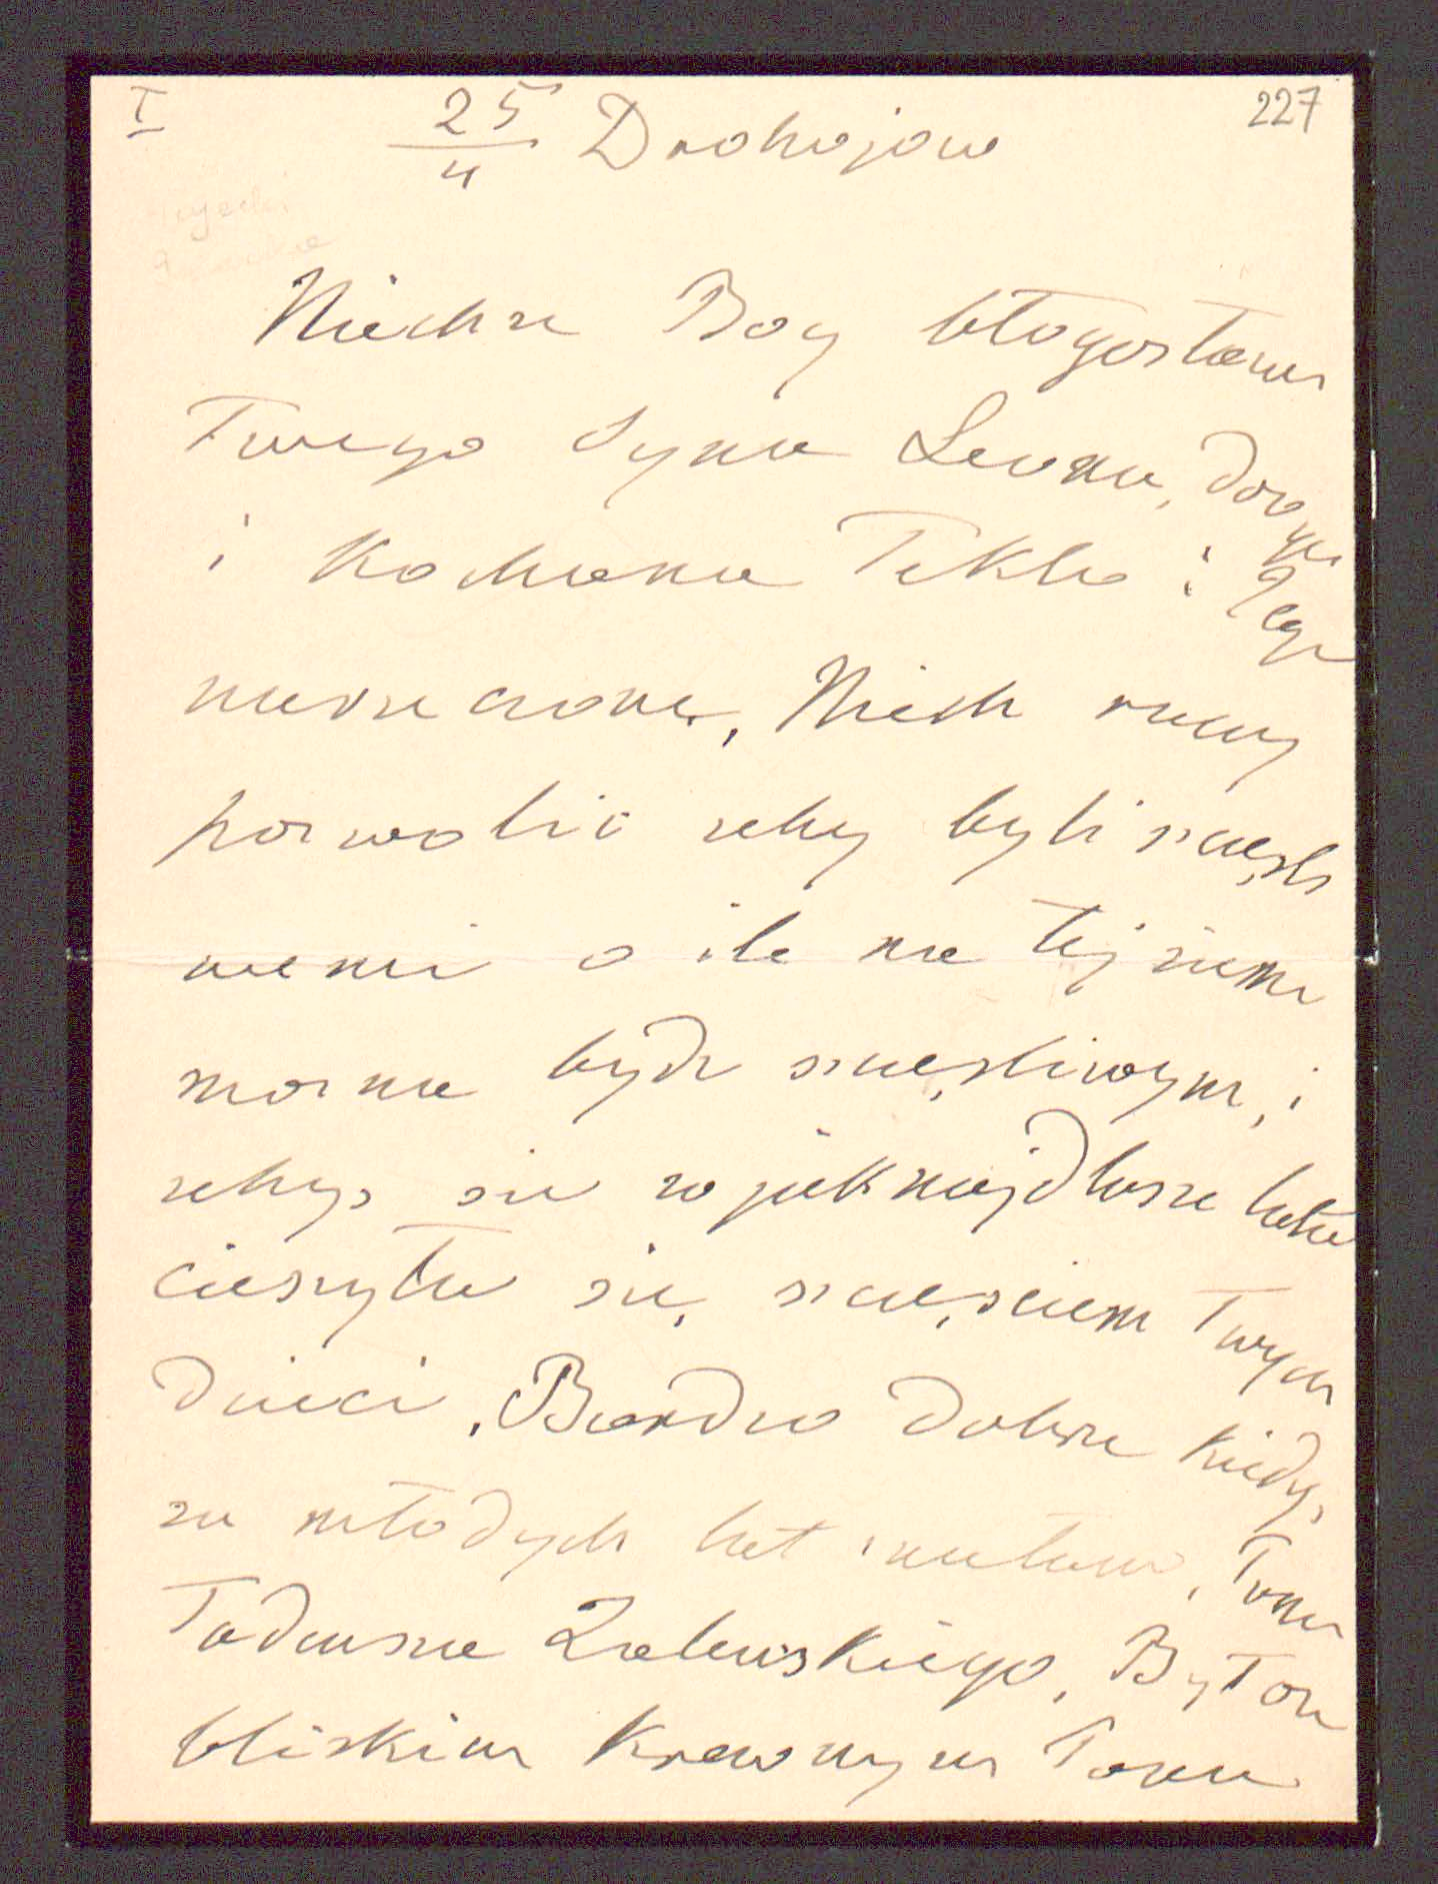 I 25/4 Drohojow 227
Niechże Bog błogosławi
Twego Syna Leona, Drogę
i Kochana Teklo i Jego
narzeczone, Niech raczy
pozwolić żeby byli szczęśli
wemi o ile na tej ziemi
można bydz szczęśliwym, i
żebyś się w jak najdłuższe lata
cieszyła się szczęściem Twych
dzieci, Bardzo dobrze kiedyś
za młodych lat znałam,
Tadeusza Zaleuskiego, Był on
bliskim krewnym